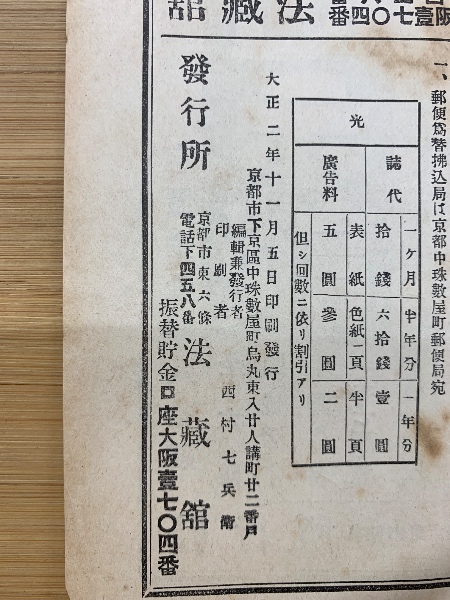 法藏舘
一、郵便爲替拂込局は京都中珠數屋町郵便局宛
光
誌代
一ケ月 半年分 一年分
拾錢 六拾錢 壹圓
廣告料
表紙 色紙一頁 半頁
五圓 參圓 二圓
但シ回數ニ依リ割引アリ
大正二年十一月五日印刷發行
京都市下京區中珠數屋町烏丸東入廿人講町廿二番戶
編輯兼發行者
印刷者
西村七兵衞
發行所
京都市東六條
電話下四五八番
法藏舘
振替貯金口座大阪壹七〇四番